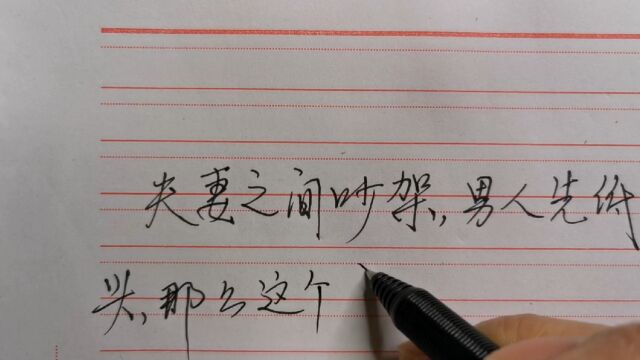 夫妻之间吵架,男人先低
头,那么这个